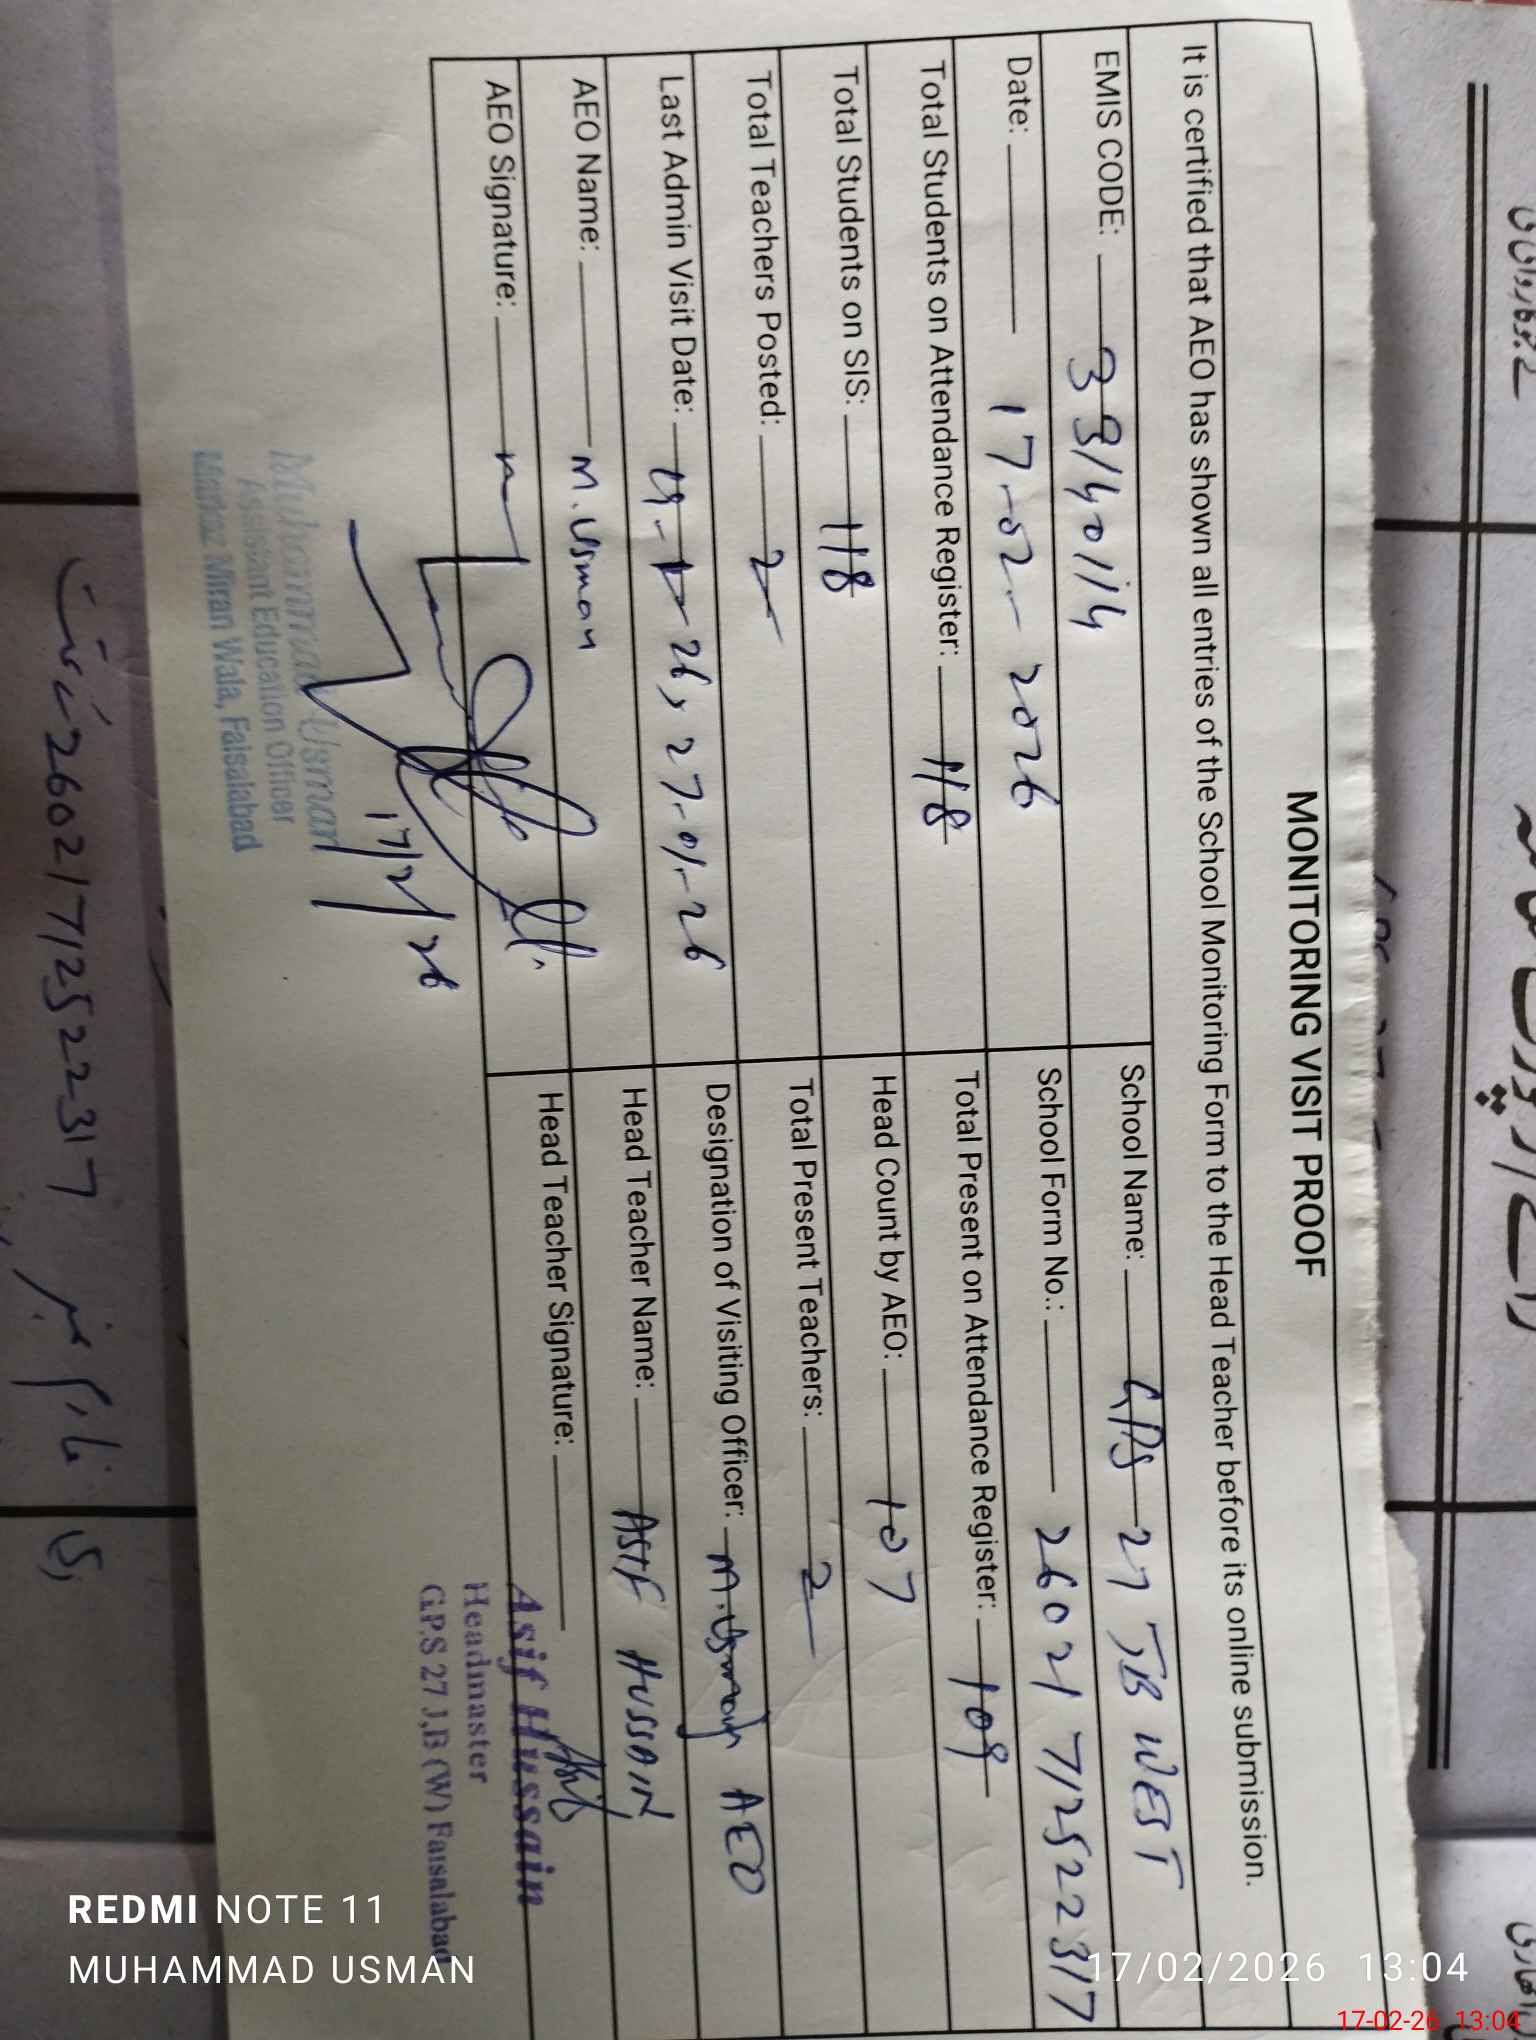 MONITORING VISIT PROOF
It is certified that AEO has shown all entries of the School Monitoring Form to the Head Teacher before its online submission.
EMIS CODE: 33140114 School Name: GPS 27 JB WEST
Date: 17-02-2026 School Form No.: 26021712522317
Total Students on Attendance Register: 118 Total Present on Attendance Register: 109
Total Students on SIS: 118 Head Count by AEO: 107
Total Teachers Posted: 2 Total Present Teachers: 2
Last Admin Visit Date: 26, 27-01-26 Designation of Visiting Officer: M. Usman AEO
AEO Name: M. Usman Head Teacher Name: ASIF HUSSAIN
AEO Signature: Head Teacher Signature: Asif
17/2/26
Muhammad Usman
Assistant Education Officer
Markaz Miran Wala, Faisalabad
Asif Hussain
Headmaster
G.P.S 27 J.B (W) Faisalabad
26021712522317
REDMI NOTE 11
MUHAMMAD USMAN
17/02/2026 13:04
17-02-26 13:04